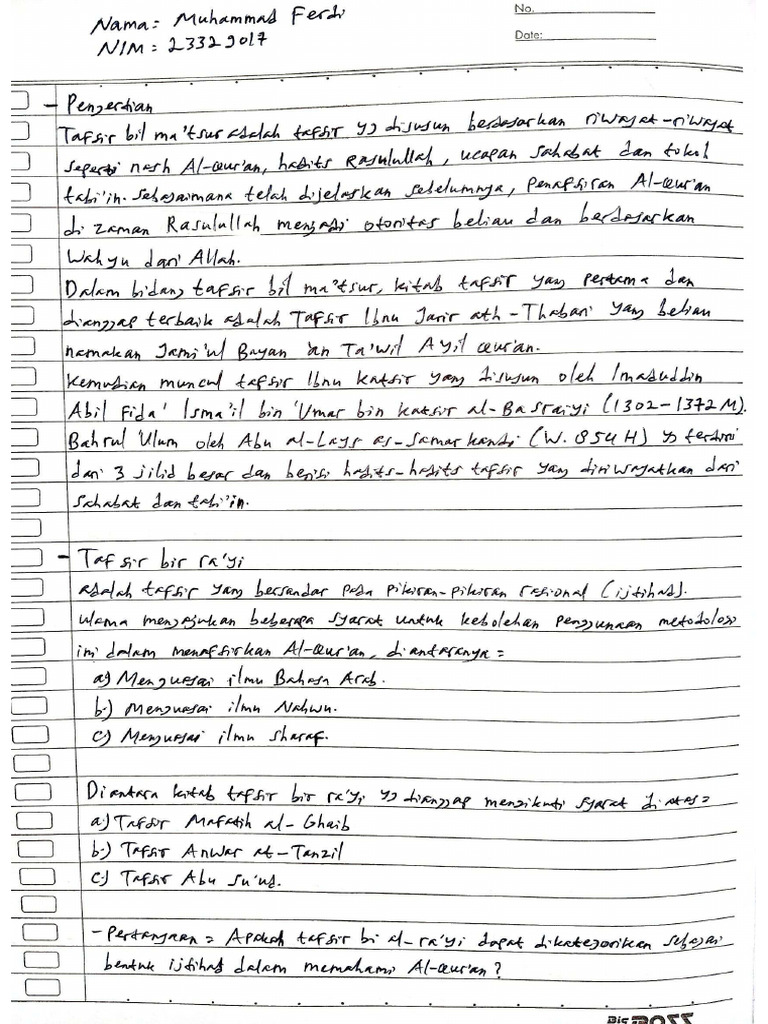 Nama: Muhammad Ferdi
No.
NIM: 23329017
Date:
- Pengertian
Tafsir bil ma'tsur adalah tafsir yg disusun berdasarkan riwayat-riwayat
seperti nash Al-Qur'an, hadits Rasulullah, ucapan sahabat dan tokoh
tabi'in. Sebagaimana telah dijelaskan sebelumnya, penafsiran Al-Qur'an
di zaman Rasulullah menjadi otoritas beliau dan berdasarkan
Wahyu dari Allah.
Dalam bidang tafsir bil ma'tsur, kitab tafsir yang pertama dan
dianggap terbaik adalah Tafsir Ibnu Jarir ath-Thabari yang beliau
namakan Jami'ul Bayan 'an Ta'wil Ayil Qur'an.
Kemudian muncul tafsir Ibnu Katsir yang disusun oleh Imaduddin
Abil Fida' Isma'il bin 'Umar bin Katsir al-Basraiyi (1302-1372 M).
Bahrul 'Ulum oleh Abu al-Lays as-Samarkandi (W. 854 H) yg terdiri
dari 3 jilid besar dan berisi hadits-hadits tafsir yang diriwayatkan dari
sahabat dan tabi'in.
- Tafsir bir ra'yi
adalah tafsir yang bersandar pada pikiran-pikiran rasional (ijtihad).
ulama mengajukan beberapa syarat untuk kebolehan penggunaan metodologi
ini dalam menafsirkan Al-Qur'an, diantaranya =
a) Menguasai ilmu Bahasa Arab.
b.) Menguasai ilmu Nahwu.
c) Menguasai ilmu sharaf.
Diantara kitab tafsir bir ra'yi yg dianggap mengikuti syarat diatas =
a.) Tafsir Mafatih al-Ghaib
b.) Tafsir Anwar at-Tanzil
c.) Tafsir Abu Su'ud.
- Pertanyaan = Apakah tafsir bi al-ra'yi dapat dikategorikan sebagai
bentuk ijtihad dalam memahami Al-Qur'an?
Big BOSS